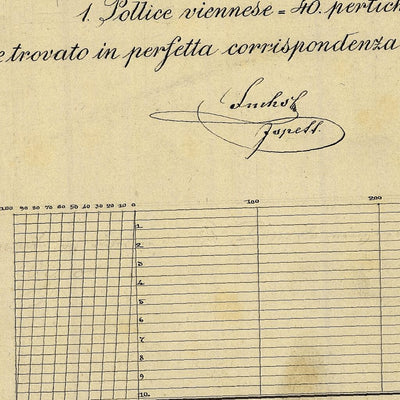 1. Pollice viennese = 40. pertich
e trovato in perfetta corrispondenza
Inspett.
100 90 80 70 60 50 40 30 20 10 0 100 200
1.
2.
3.
4.
5.
6.
7.
8.
9.
10.